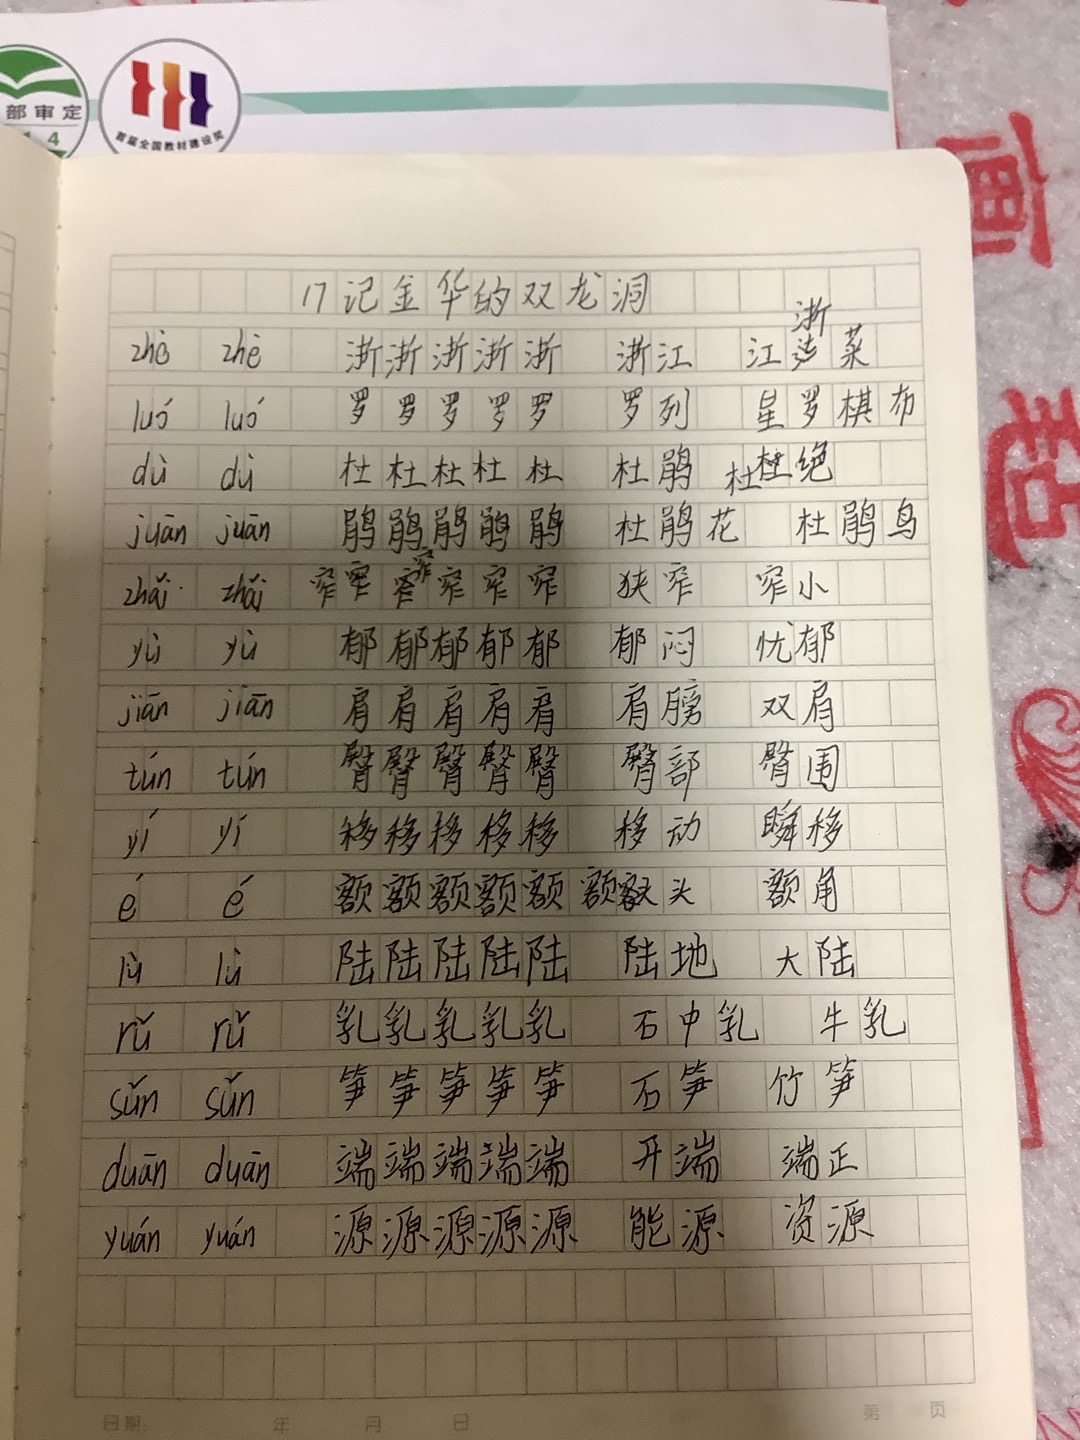 部审定
4
首届全国教材建设奖
17记金华的双龙洞
浙
zhè zhè 浙浙浙浙浙 浙江 江 菜
luó luó 罗罗罗罗罗 罗列 星罗棋布
dù dù 杜杜杜杜杜 杜鹃 杜杜绝
juān juān 鹃鹃鹃鹃鹃 杜鹃花 杜鹃鸟
窄
zhǎi zhǎi 窄窄窄窄窄窄 狭窄 窄小
yù yù 郁郁郁郁郁 郁闷 忧郁
jiān jiān 肩肩肩肩肩 肩膀 双肩
tún tún 臀臀臀臀臀 臀部 臀围
yí yí 移移移移移 移动 瞬移
é é 额额额额额 额头 额角
lù lù 陆陆陆陆陆 陆地 大陆
rǔ rǔ 乳乳乳乳乳 石中乳 牛乳
sǔn sǔn 笋笋笋笋笋 石笋 竹笋
duān duān 端端端端端 开端 端正
yuán yuán 源源源源源 能源 资源
日期: 年 月 日 第 页
画
起